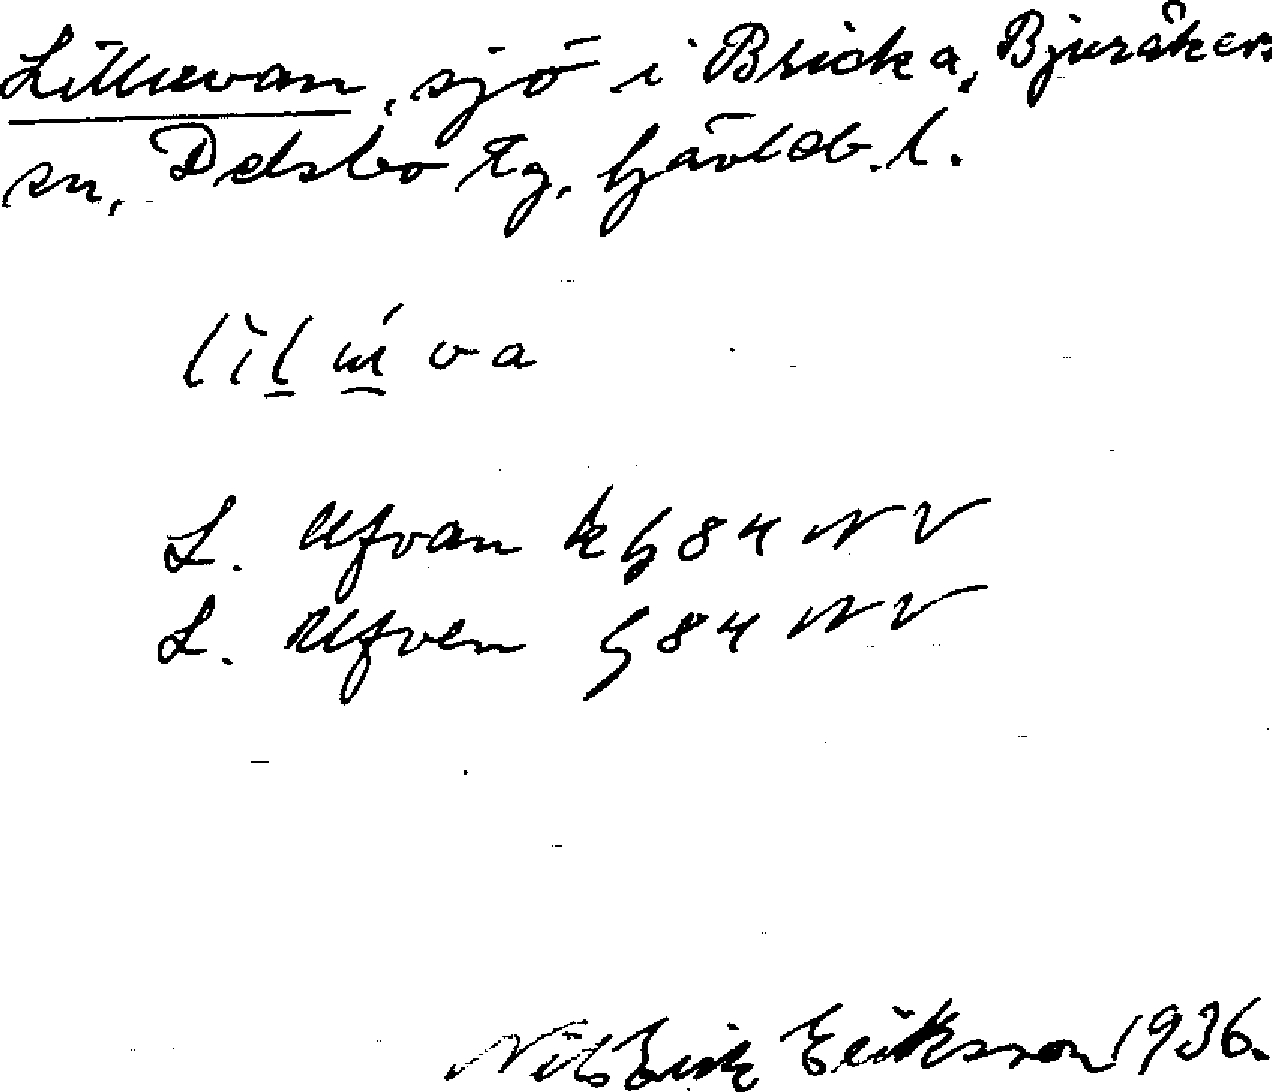 Lilluvan, sjö i Bricka, Bjuråkers
sn, Delsbo tg. Gävleb. l.
L. Ufvan k G 84 NV
L. Ufven G 84 NV
Nils Erik Eriksson 1936.